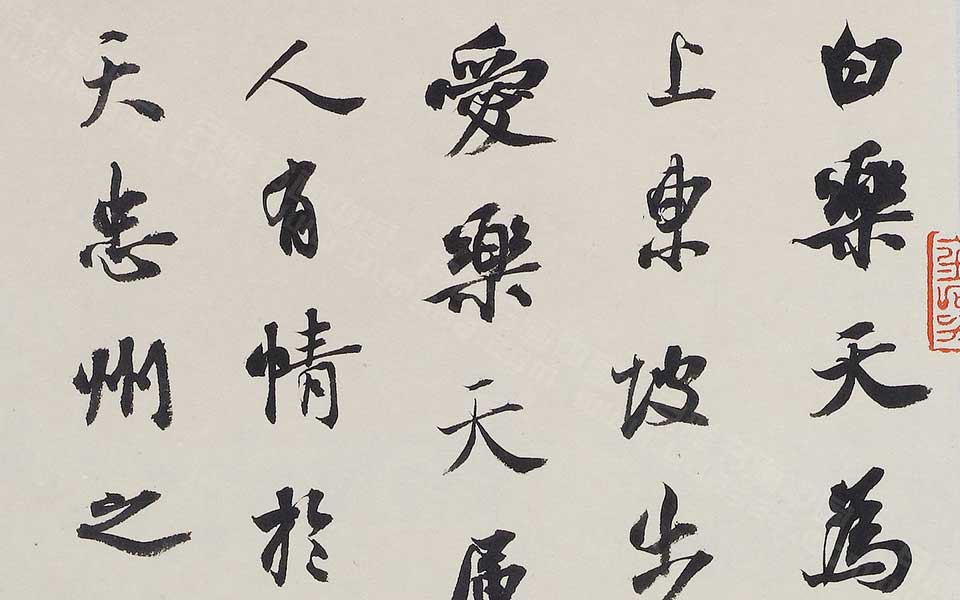 白樂天為
上東坡步
愛樂天
人有情於
天忠州之